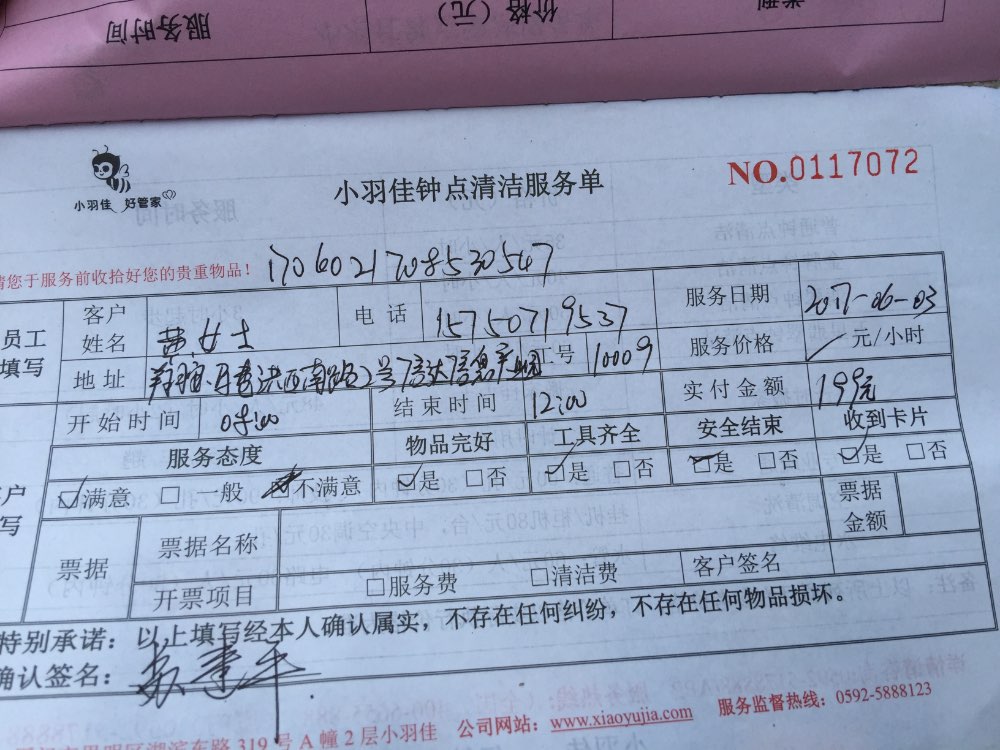 服务时间 价格（元） 类型
小羽佳 好管家
小羽佳钟点清洁服务单
NO.0117072
请您于服务前收拾好您的贵重物品！
1706021708530547
员工填写
客户姓名 黄女士 电话 15750719537 服务日期 2017-06-03
地址 工号 10009 服务价格 元/小时
开始时间 08:00 结束时间 12:00 实付金额 199元
服务态度 物品完好 工具齐全 安全结束 收到卡片
☑满意 □一般 □不满意 ☑是 □否 ☑是 □否 ☑是 □否 ☑是 □否
票据 票据名称 票据金额
开票项目 □服务费 □清洁费 客户签名
特别承诺：以上填写经本人确认属实，不存在任何纠纷，不存在任何物品损坏。
确认签名：
湖滨东路319号A幢2层小羽佳 公司网站：www.xiaoyujia.com 服务监督热线：0592-5888123